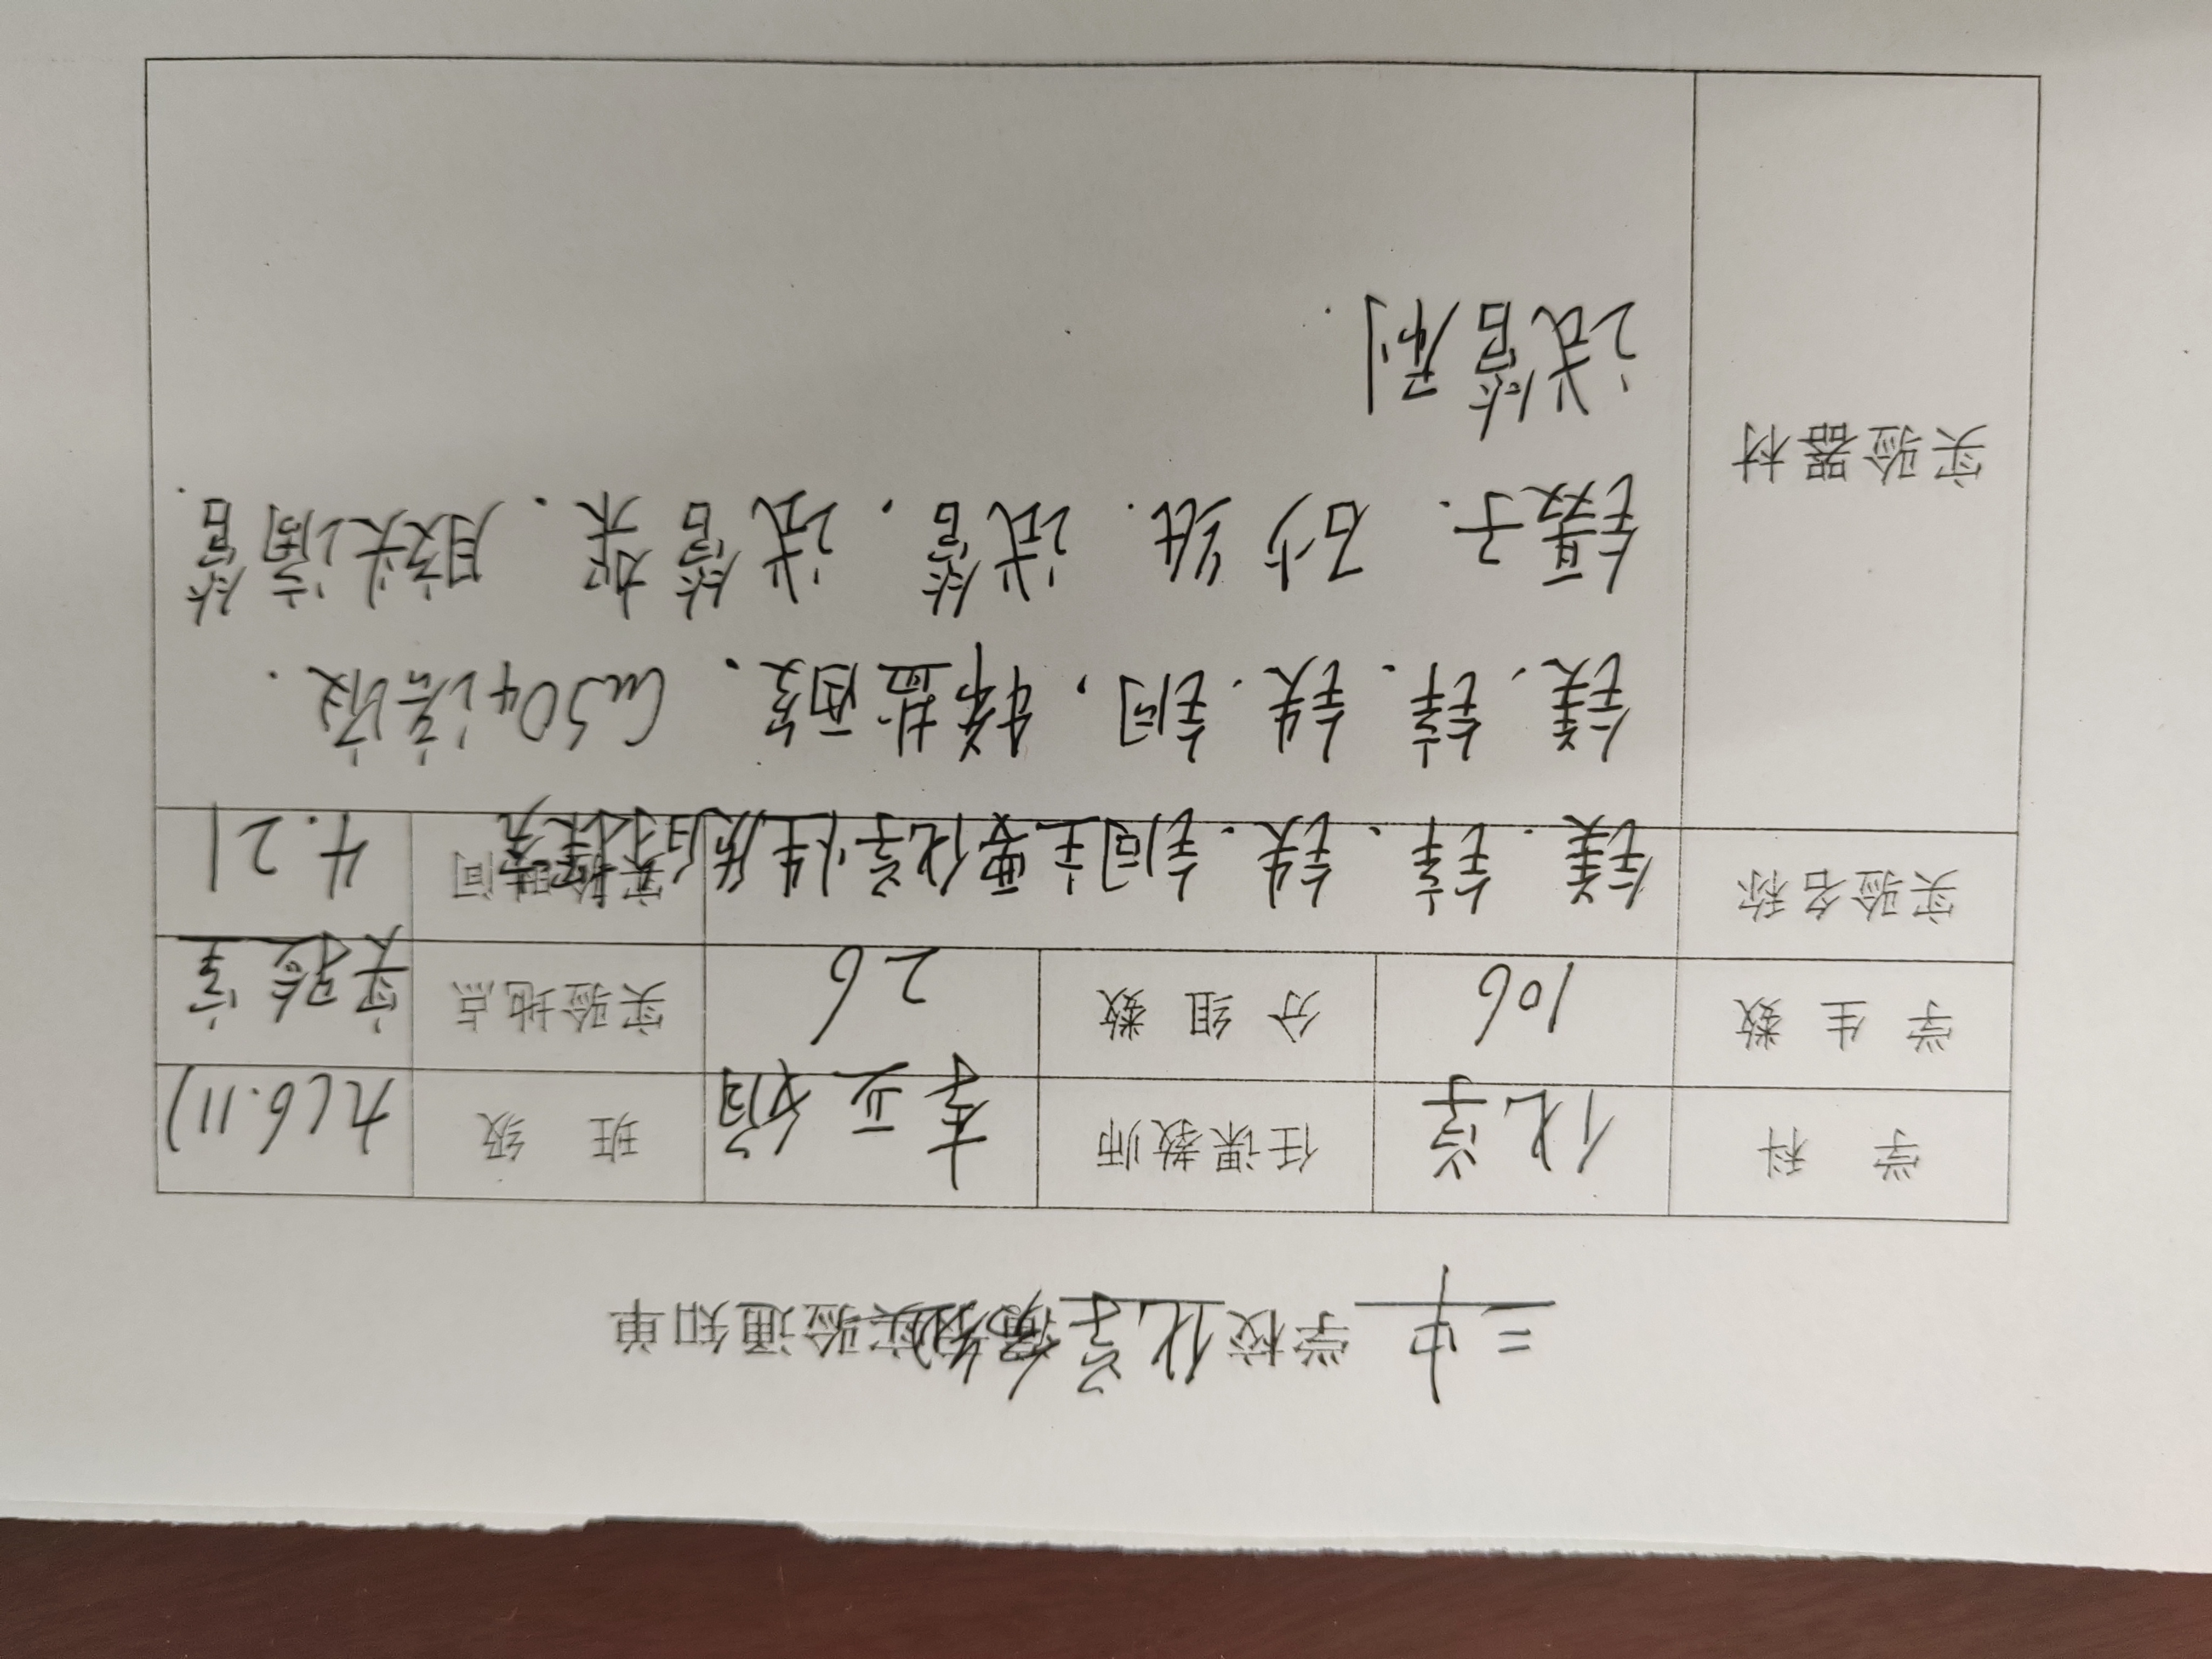 三中 学校 化学 实验通知单
学 科 化学 任课教师 李亚娟 班 级 九(6.11)
学 生 数 106 分 组 数 26 实验地点 实验室
实验名称 镁.锌、铁.铜主要化学性质的探究 实验时间 4.21
实验器材
镁、锌、铁.铜,稀盐酸、CuSO4溶液.
镊子.砂纸.试管,试管架.胶头滴管.
试管刷.